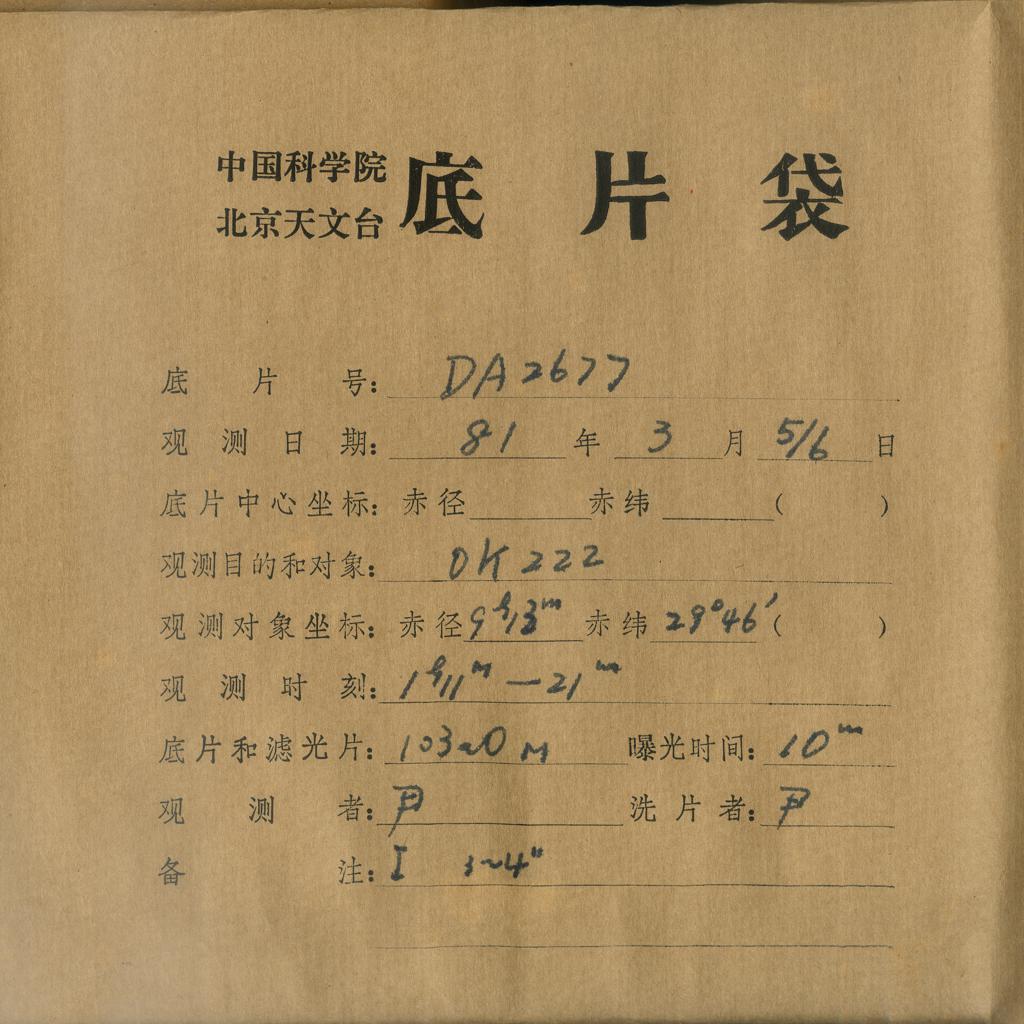 中国科学院
北京天文台 底片袋
底片号: DA2677
观测日期: 81 年 3 月 5/6 日
底片中心坐标: 赤径 赤纬 ( )
观测目的和对象: OK222
观测对象坐标: 赤径 9h13m 赤纬 29°46′ ( )
观测时刻: 1h11m—21m
底片和滤光片: 103aO M 曝光时间: 10m
观测者: 尹 洗片者: 尹
备注: I 3~4"